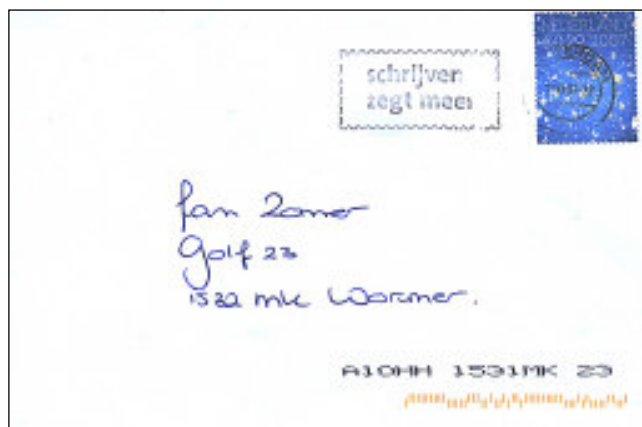 NEDERLAND
schrijven
zegt meer
Jan Zomer
Golf 23
1532 mk Wormer.
A10HH 1531MK 23